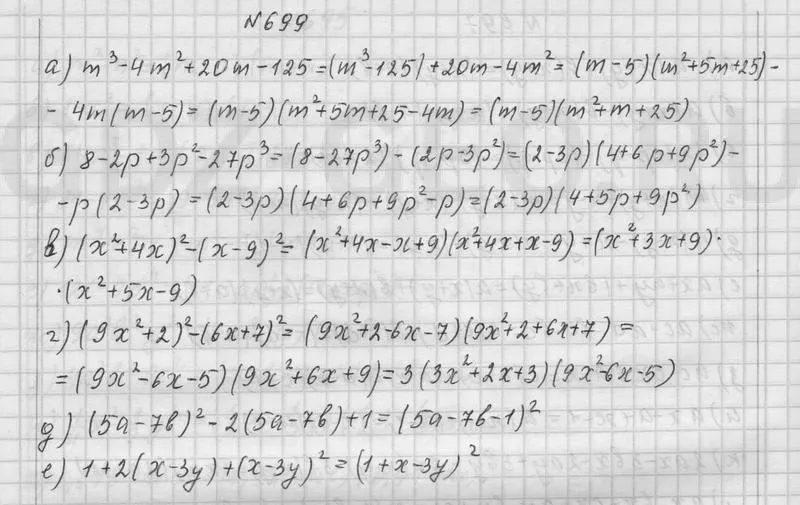 №699
а) m³-4m²+20m-125=(m³-125)+20m-4m²=(m-5)(m²+5m+25)-
-4m(m-5)=(m-5)(m²+5m+25-4m)=(m-5)(m²+m+25)
б) 8-2p+3p²-27p³=(8-27p³)-(2p-3p²)=(2-3p)(4+6p+9p²)-
-p(2-3p)=(2-3p)(4+6p+9p²-p)=(2-3p)(4+5p+9p²)
в) (x²+4x)²-(x-9)²=(x²+4x-x+9)(x²+4x+x-9)=(x²+3x+9)·
·(x²+5x-9)
г) (9x²+2)²-(6x+7)²=(9x²+2-6x-7)(9x²+2+6x+7)=
=(9x²-6x-5)(9x²+6x+9)=3(3x²+2x+3)(9x²-6x-5)
д) (5a-7b)²-2(5a-7b)+1=(5a-7b-1)²
е) 1+2(x-3y)+(x-3y)²=(1+x-3y)²